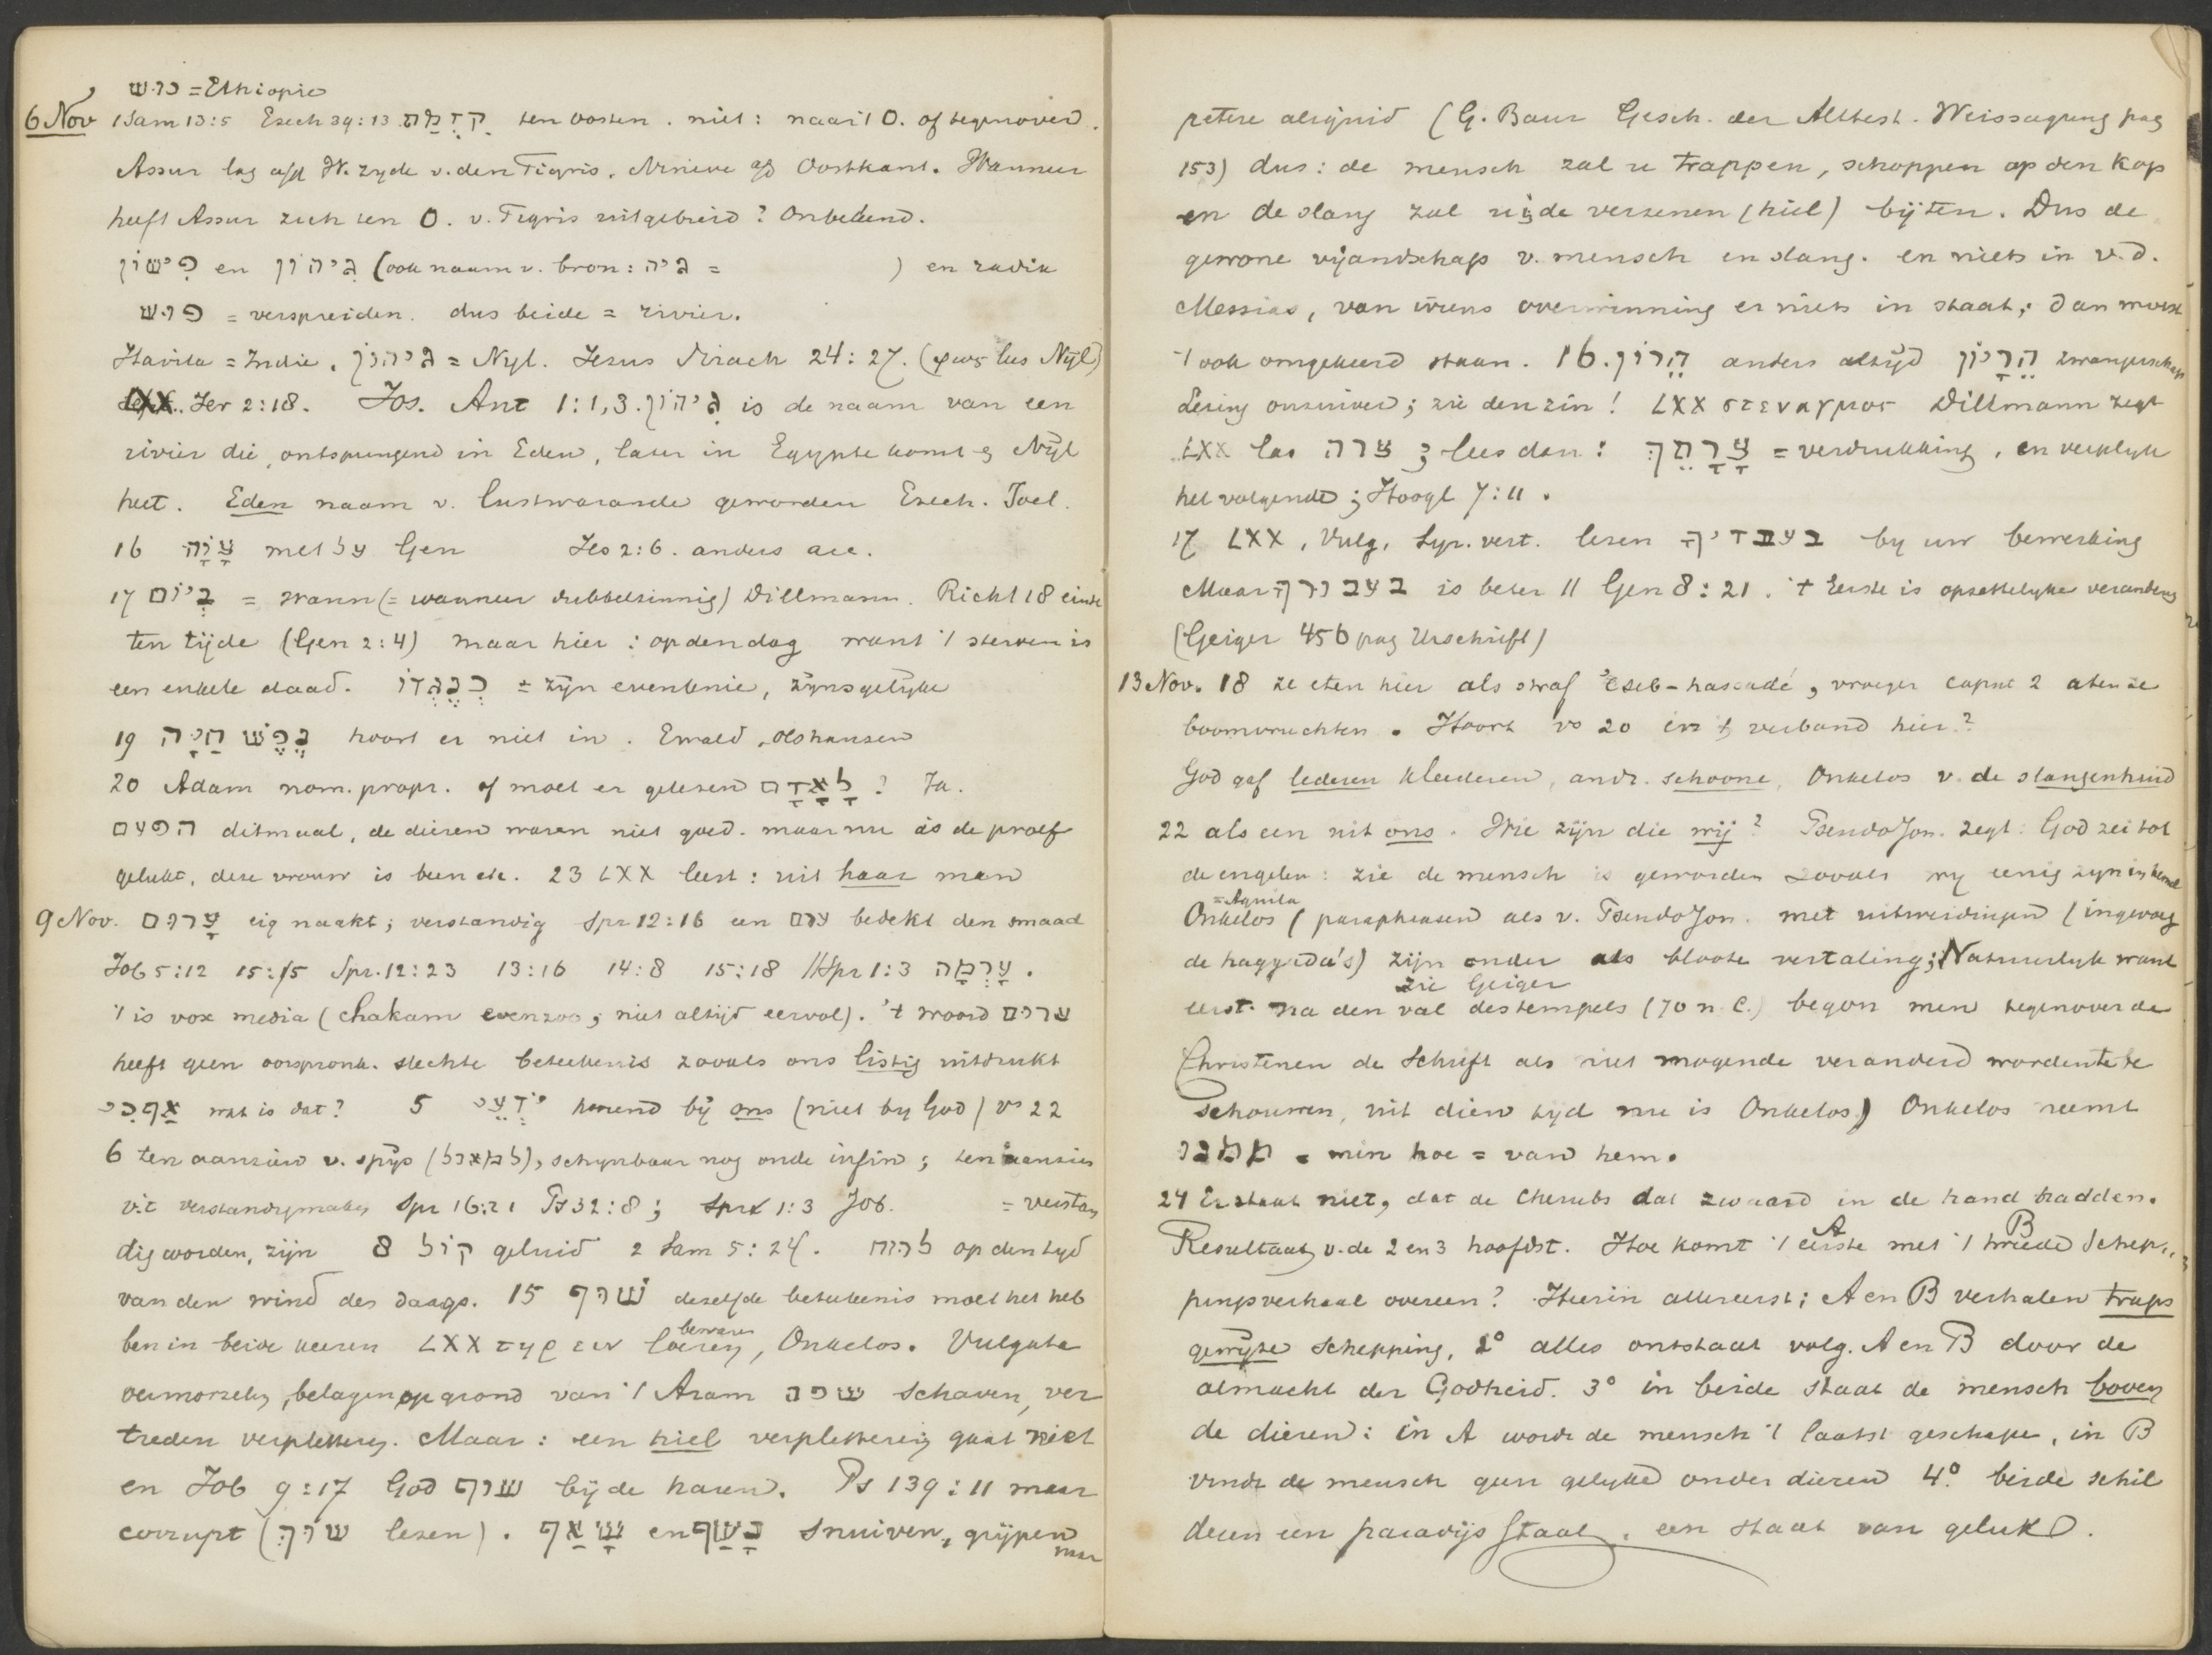 כוש = Ethiopie
6 Nov 1 Sam 13:5 Ezech 39:13 קִדְמַת ten oosten. niet: naar 't O. of tegenover.
Assur lag a/d W. zyde v. den Tigris, Nineve a/d Oostkant. Wanneer
heeft Assur zich ten O. v. Tigris uitgebreid? Onbekend.
פישון en גיחון (ook naam v. bron: גיח = ) en radix
פוש = verspreiden. dus beide = rivier.
Havila = Indie. גיחון = Nyl. Jezus Sirach 24:27. (φως lees Nijl)
LXX. Jer 2:18. Jos. Ant 1:1,3. גיחון is de naam van een
rivier die, ontspringend in Eden, later in Egypte komt en Nijl
heet. Eden naam v. lustwarande geworden Ezech. Joel.
16 צִוָּה met על Gen Jes 2:6. anders acc.
17 בְּיוֹם = wann (= wanneer dubbelzinnig) Dillmann. Richt 18 einde
ten tijde (Gen 2:4) maar hier: op den dag want 't sterven is
een enkele daad. כְּנֶגְדּוֹ = zijn evenknie, zijnsgelijke
19 נֶפֶשׁ חַיָּה hoort er niet in. Ewald, Olshausen
20 Adam nom. propr. of moet er gelezen לָאָדָם? Ja.
הפעם ditmaal, de dieren waren niet goed. maar nu is de proef
gelukt, deze vrouw is been etc. 23 LXX leest: uit haar man
9 Nov. עָרוּם eig naakt; verstandig Spr 12:16 een ערם bedekt den smaad
Job 5:12 15:15 Spr. 12:23 13:16 14:8 15:18 // Spr 1:3 עָרְמָה.
't is vox media (chakam evenzoo, niet altijd eervol). 't woord ערום
heeft geen oorspronk. slechte beteekenis zooals ons listig uitdrukt
אַף כִּי wat is dat? 5 יֹדְעֵי kennend bij ons (niet by God) vs 22
6 ten aanzien v. spijs (למאכל), schynbaar nog oude infin; ten aanzien
v. 't verstandigmaken Spr 16:21 Ps 32:8; Spr 1:3 Job. = verstan
dig worden, zijn 8 קול geluid 2 Sam 5:24. לרוח op den tyd
van den wind des daags. 15 שוף dezelfde beteekenis moet het heb
ben in beide keeren LXX τηρειν loeren, bewaren, Onkelos. Vulgata
vermorzelen, belagen op grond van 't Aram שפה schaven, ver
treden verpletteren. Maar: een hiel verpletteren gaat niet
en Job 9:17 God שוף bij de haren. Ps 139:11 maar
corrupt (שוך lezen). שָׁאַף en נָשַׁף snuiven, grijpen
naar
petere aliquid (G. Baur Gesch. der Alttest. Weissagung pag
153) dus: de mensch zal u trappen, schoppen op den kop
en de slang zal u in de verzenen (hiel) bijten. Dus de
gewone vijandschap v. mensch en slang. en niets in v. d.
Messias, van wiens overwinning er niets in staat; dan moest
't ook omgekeerd staan. 16. הֵרוֹן anders altijd הֵרָיוֹן zwangerschap
Lezing onzuiver; zie den zin! LXX στεναγμος Dillmann zegt
LXX las צרה; lees dan: צָרָתֵךְ = verdrukking, en vergelyk
het volgende; Hoogl 7:11.
17 LXX, Vulg, Syr. vert. lezen בעבדיך by uw bewerking
Maar בעבורך is beter // Gen 8:21. 't Eerste is opzettelyke verandering
(Geiger 456 pag Urschrift)
13 Nov. 18 ze eten hier als straf 'eseb-hassadé, vroeger caput 2 aten ze
boomvruchten. Hoort vs 20 in 't verband hier?
God gaf lederen kleederen, andr. schoone, Onkelos v. de slangenhuid
22 als een uit ons. Wie zijn die wij? PseudoJon. zegt: God zei tot
de engelen: zie de mensch is geworden zooals wy eenig zyn in hemel
= Aquila
Onkelos (paraphrasen als v. PseudoJon. met uitweidingen (ingevoeg
de haggada's) zijn ouder als bloote vertaling; Natuurlyk want
zie Geiger
eerst na den val des tempels (70 n. C.) begon men tegenover de
Christenen de Schrift als niet mogende veranderd worden te be
schouwen, uit dien tyd nu is Onkelos) Onkelos neemt
ממנו = min hoe = van hem.
24 Er staat niet, dat de Cherubs dat zwaard in de hand hadden.
Resultaat v. de 2 en 3 hoofdst. Hoe komt 't eerste A met 't tweede B Schep„
pingsverhaal overeen? Hierin allereerst: A en B verhalen traps
gewijze schepping, 2° alles ontstaat volg. A en B door de
almacht der Godheid. 3° in beide staat de mensch boven
de dieren: in A wordt de mensch 't laatst geschapen, in B
vindt de mensch geen gelyke onder dieren 4° beide schil
deren een paradijs staat, een staat van geluk.